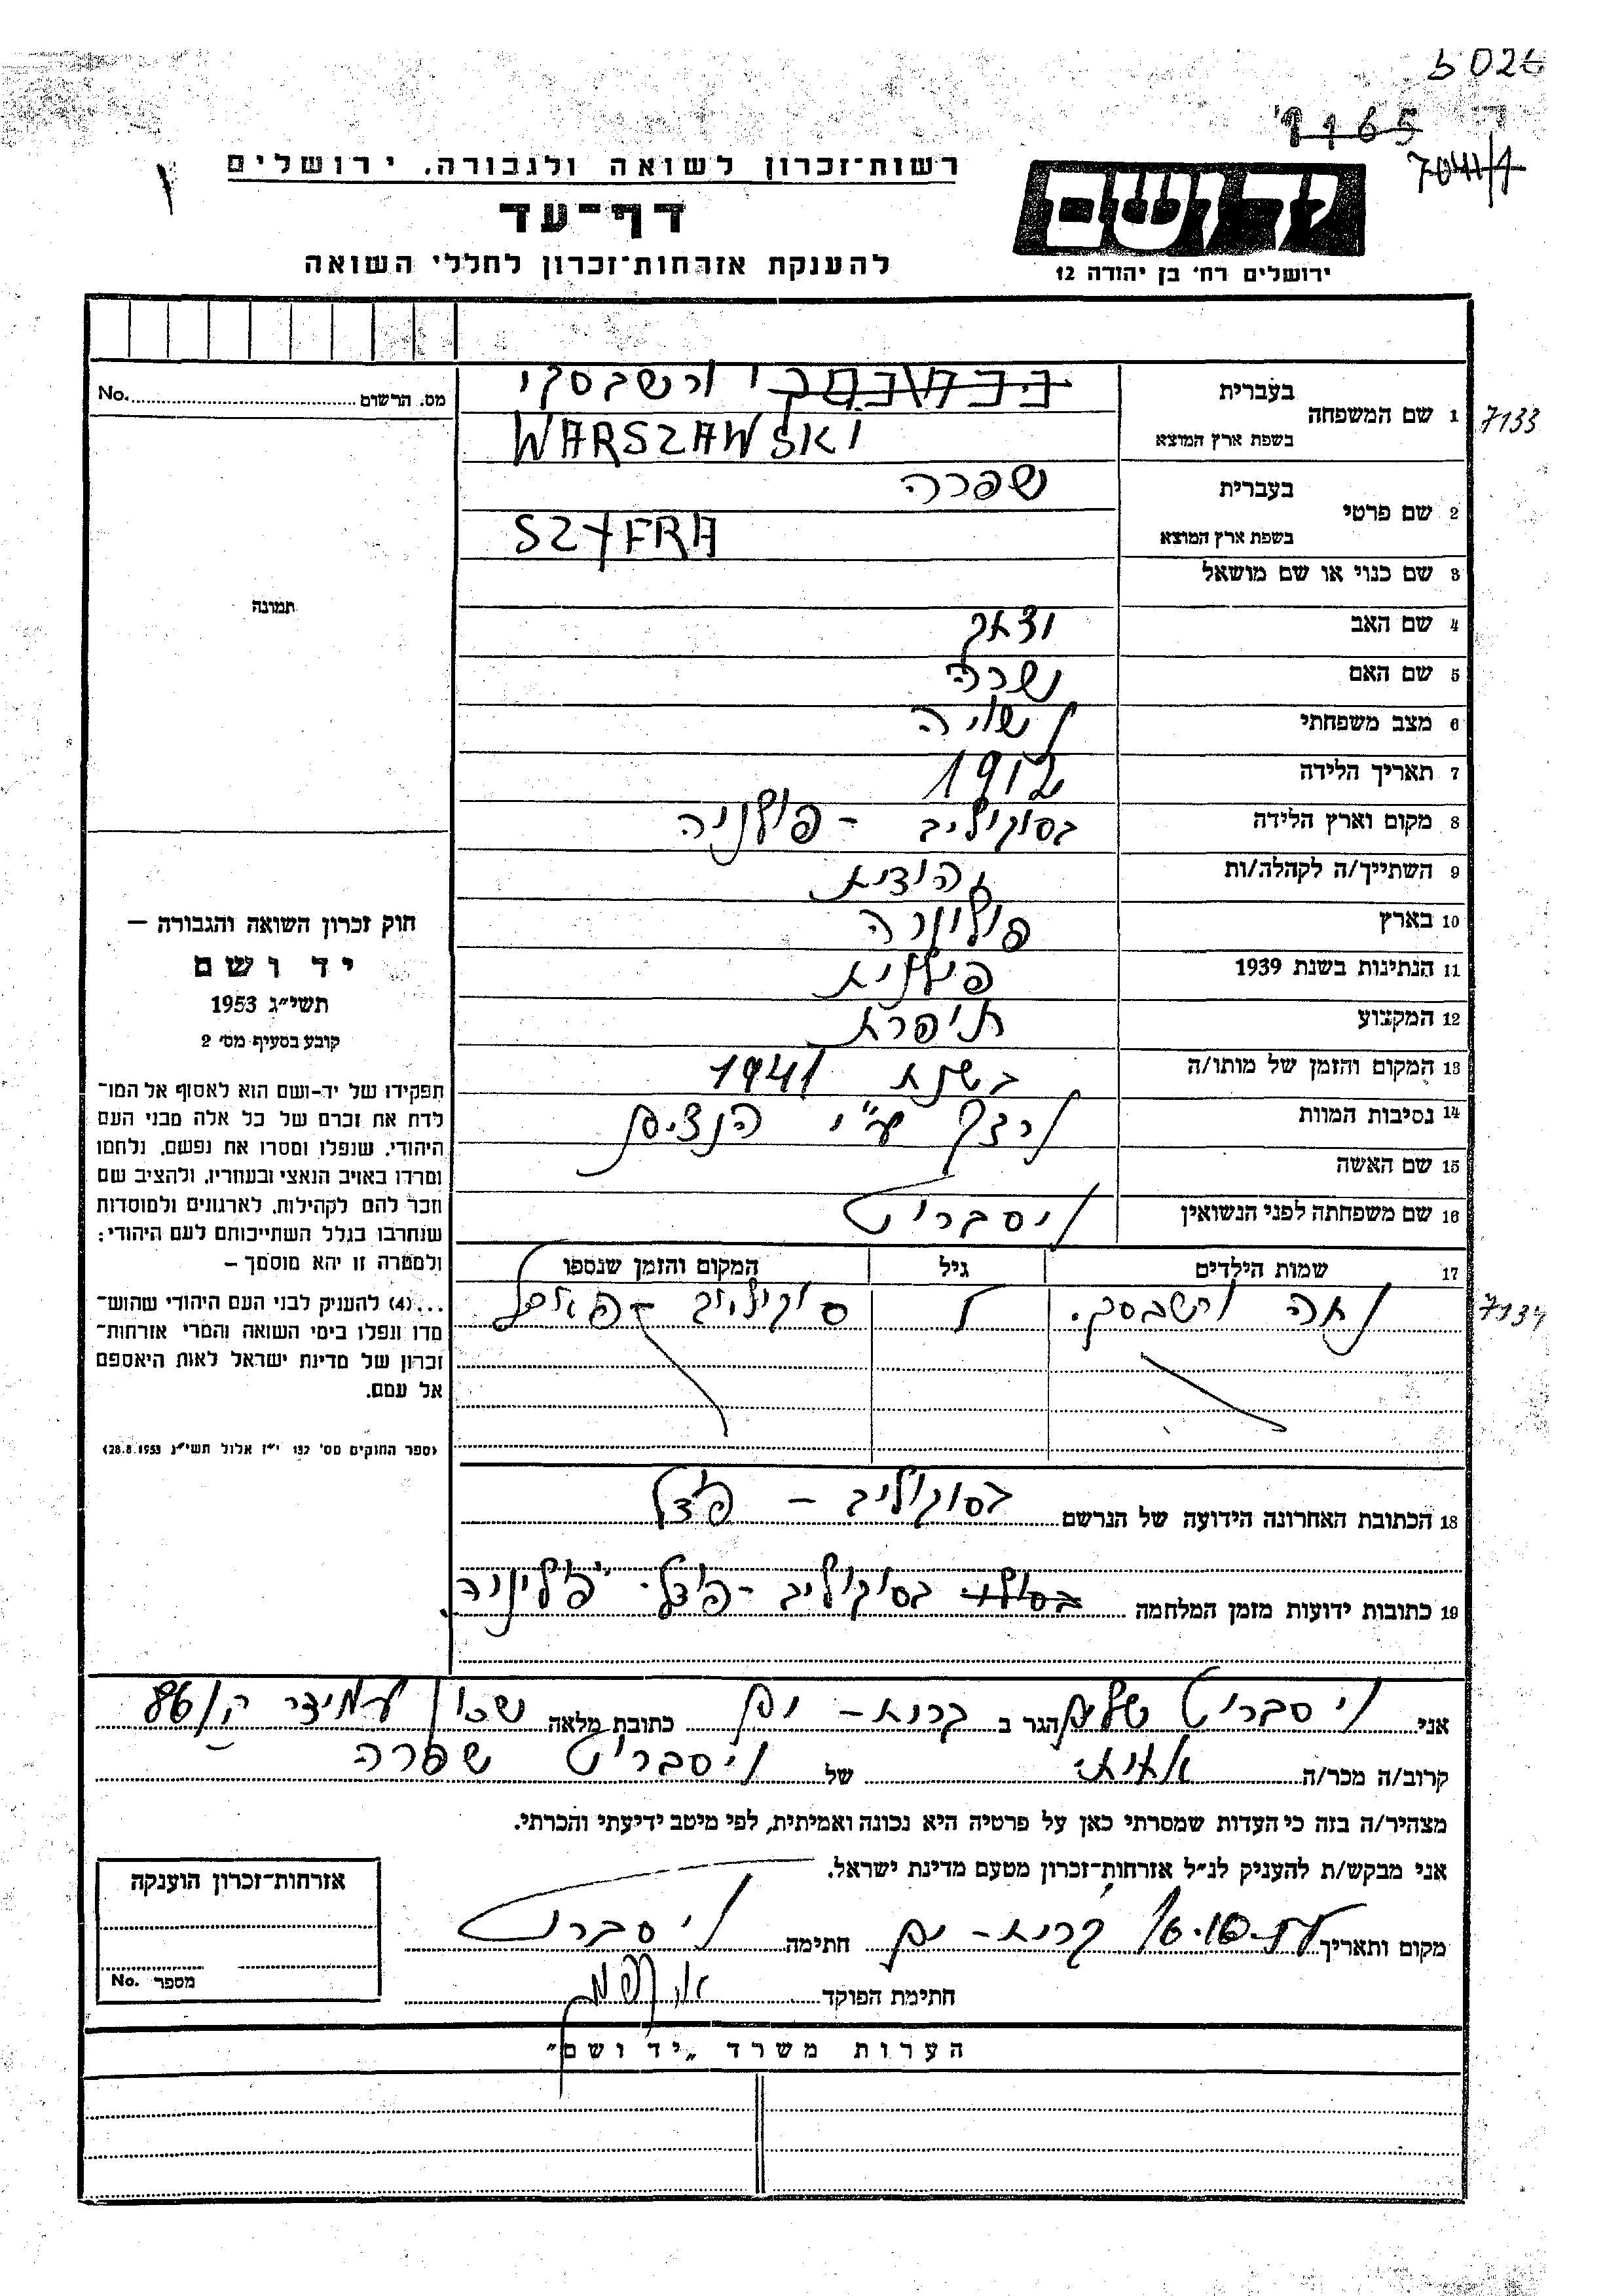 5026
9165
7041/1
רשות־זכרון לשואה ולגבורה, ירושלים
דף־עד
להענקת אזרחות־זכרון לחללי השואה
ידושם
ירושלים רח׳ בן יהודה 12
מס. הרשום No.
1 שם המשפחה בעברית ורשבסקי 7133
בשפת ארץ המוצא WARSZAWSKI
2 שם פרטי בעברית שפרה
בשפת ארץ המוצא SZYFRA
3 שם כנוי או שם מושאל
תמונה
4 שם האב
5 שם האם שרה
6 מצב משפחתי נשויה
7 תאריך הלידה 1912
8 מקום וארץ הלידה בסוקוליב - פולניה
9 השתייך/ה לקהלה/ות
10 בארץ
11 הנתינות בשנת 1939
12 המקצוע תופרת
13 המקום והזמן של מותו/ה בשנת 1941
14 נסיבות המוות ע״י הנצים
15 שם האשה
16 שם משפחתה לפני הנשואין ויסברוט
חוק זכרון השואה והגבורה —
יד ושם
תשי״ג 1953
קובע בסעיף מס׳ 2
תפקידו של יד-ושם הוא לאסוף אל המו־
לדת את זכרם של כל אלה מבני העם
היהודי, שנפלו ומסרו את נפשם, נלחמו
ומרדו באויב הנאצי ובעוזריו, ולהציב שם
וזכר להם לקהילות, לארגונים ולמוסדות
שנחרבו בגלל השתייכותם לעם היהודי;
ולמטרה זו יהא מוסמך —
...(4) להעניק לבני העם היהודי שהוש־
מדו ונפלו בימי השואה והמרי אזרחות־
זכרון של מדינת ישראל לאות היאספם
אל עמם.
(ספר החוקים מס׳ 132 י״ז אלול תשי״ג 28.8.1953)
17 שמות הילדים גיל המקום והזמן שנספו
ורשבסקי סוקוליב 7134
18 הכתובת האחרונה הידועה של הנרשם בסוקוליב -
19 כתובות ידועות מזמן המלחמה בסוקוליב
אני ויסברוט הגר ב קרית - ים כתובת מלאה שכון עמידר 86
קרוב/ה מכר/ה של ויסברוט שפרה
מצהיר/ה בזה כי העדות שמסרתי כאן על פרטיה היא נכונה ואמיתית, לפי מיטב ידיעתי והכרתי.
אני מבקש/ת להעניק לנ״ל אזרחות־זכרון מטעם מדינת ישראל.
מקום ותאריך קרית - ים חתימה ויסברוט
חתימת הפוקד
אזרחות־זכרון הוענקה
מספר No.
הערות משרד „יד ושם״